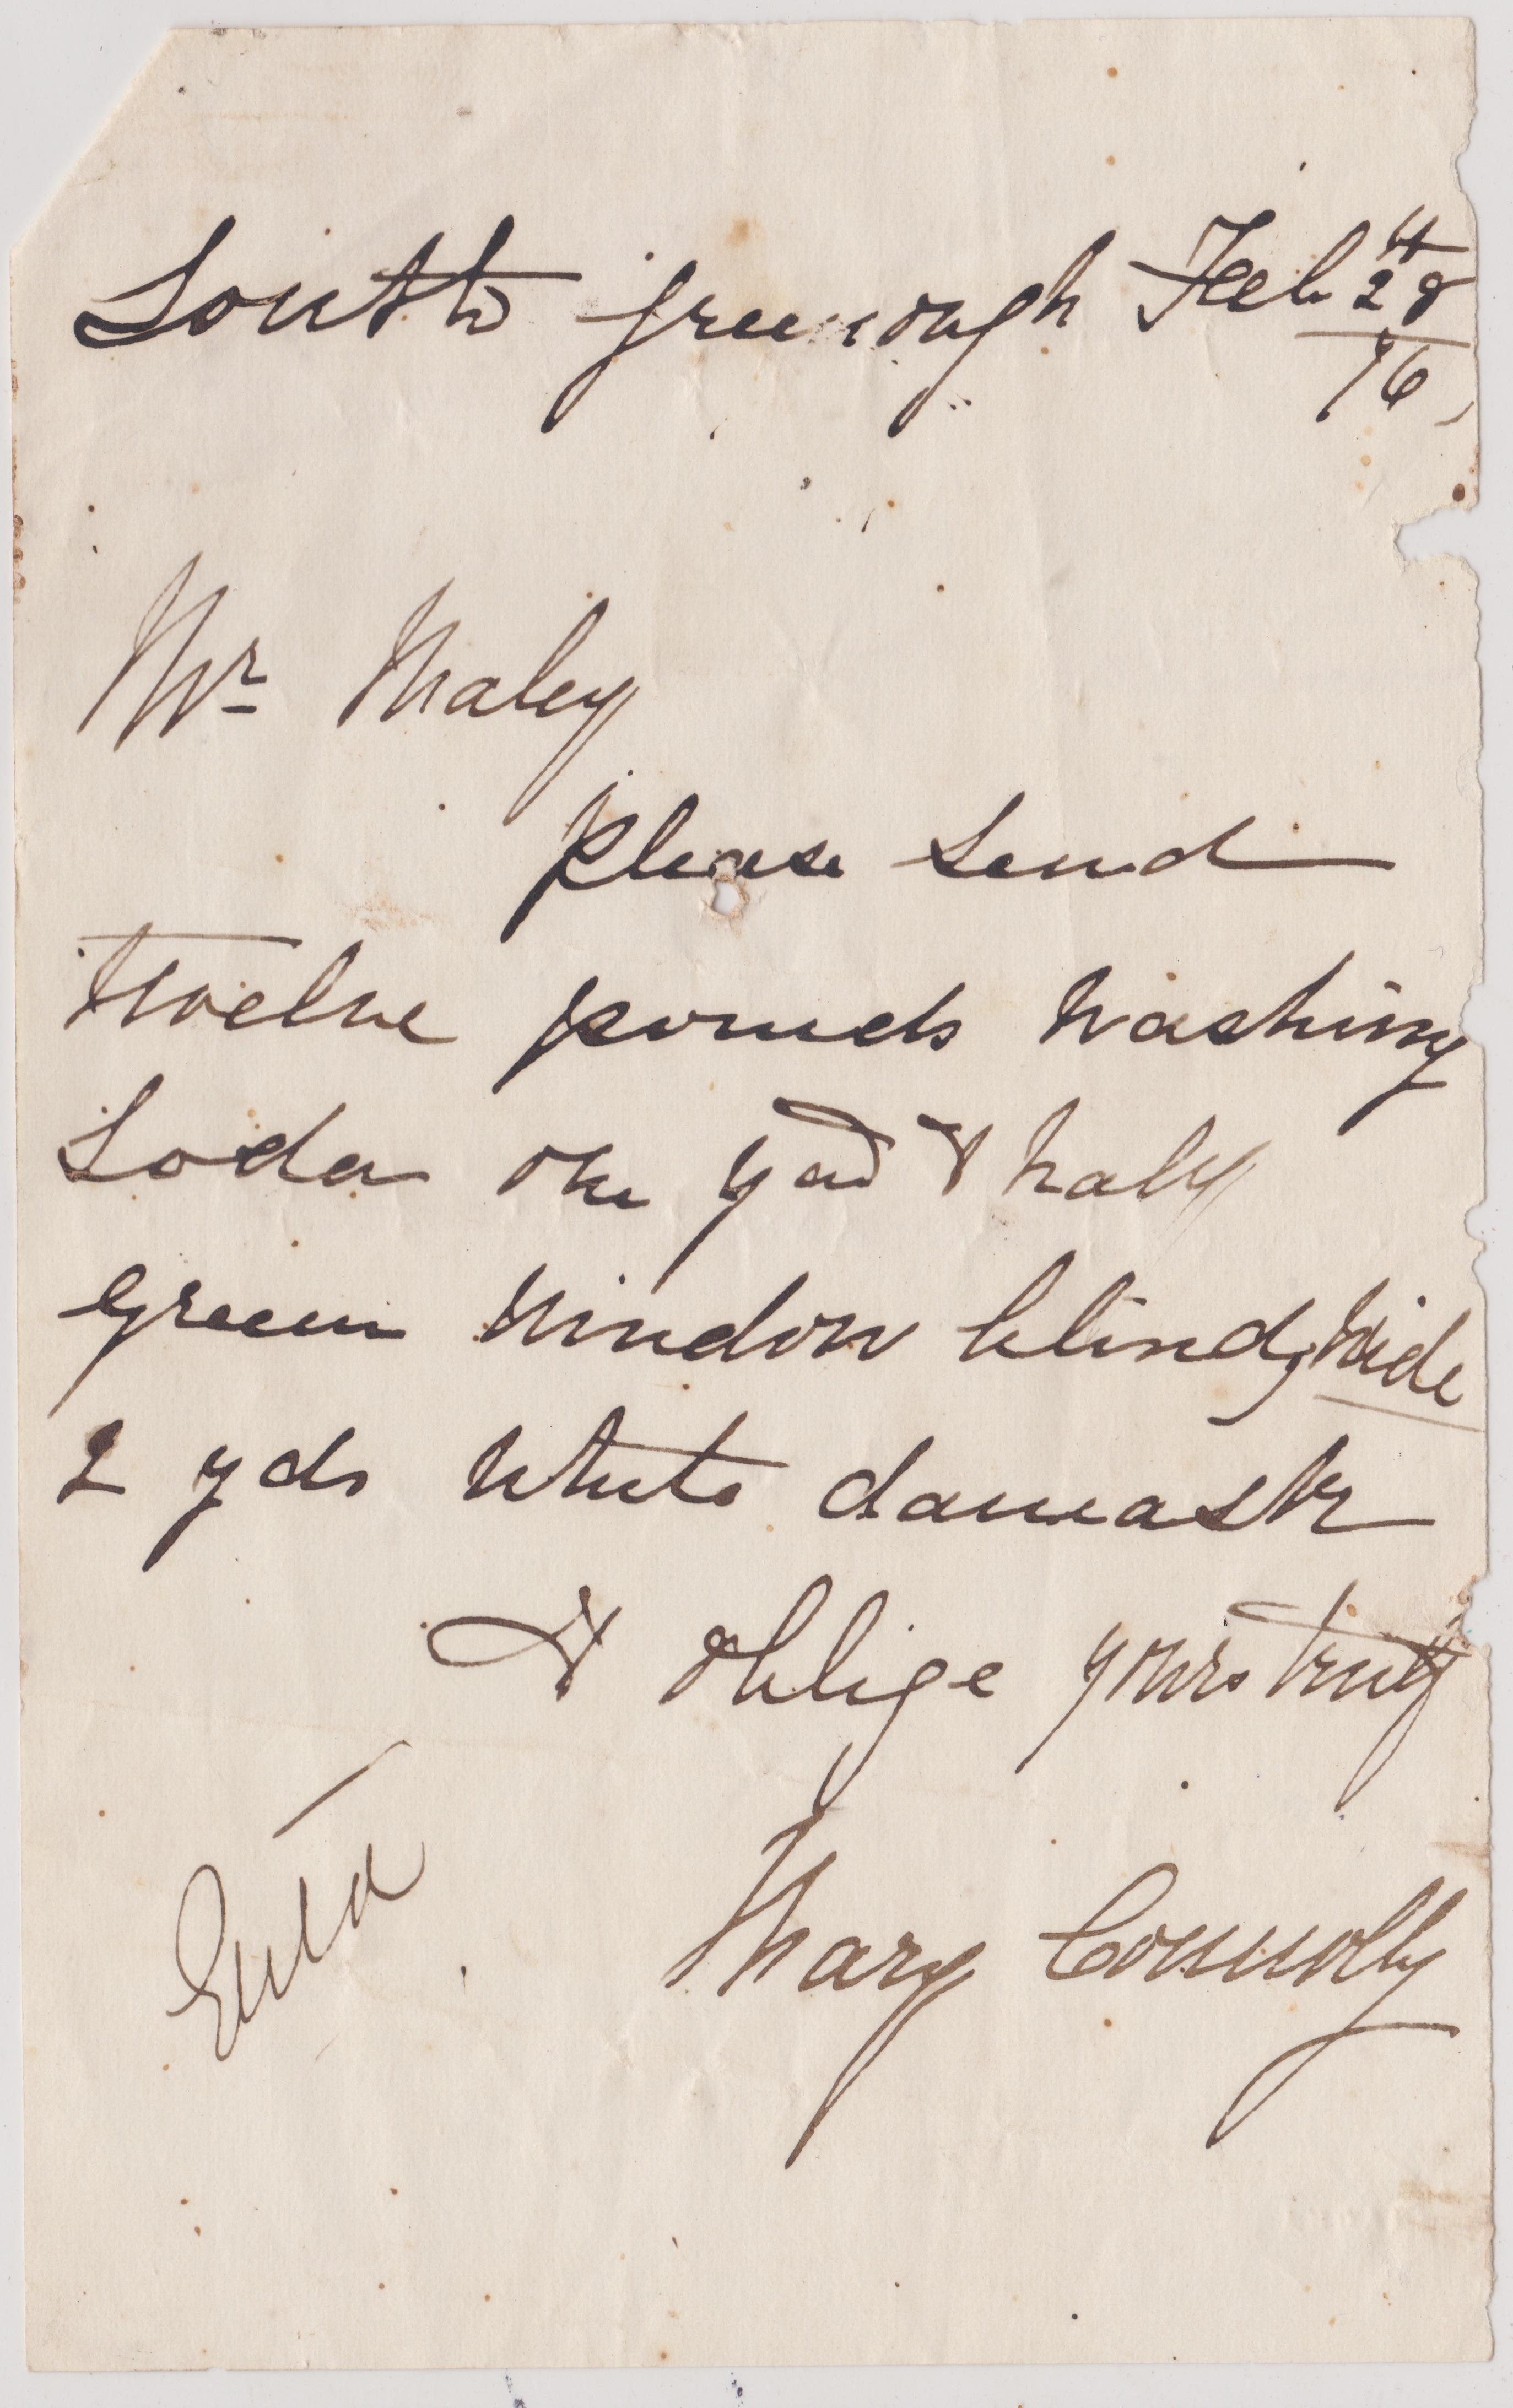 South greenough Feb 28th
/76
Mr Maley
please send
twelve pounds washing
Soda one yad & half
green window blind, wide
2 yds white damask
& oblige yours truly
Mary Connolly
Entd